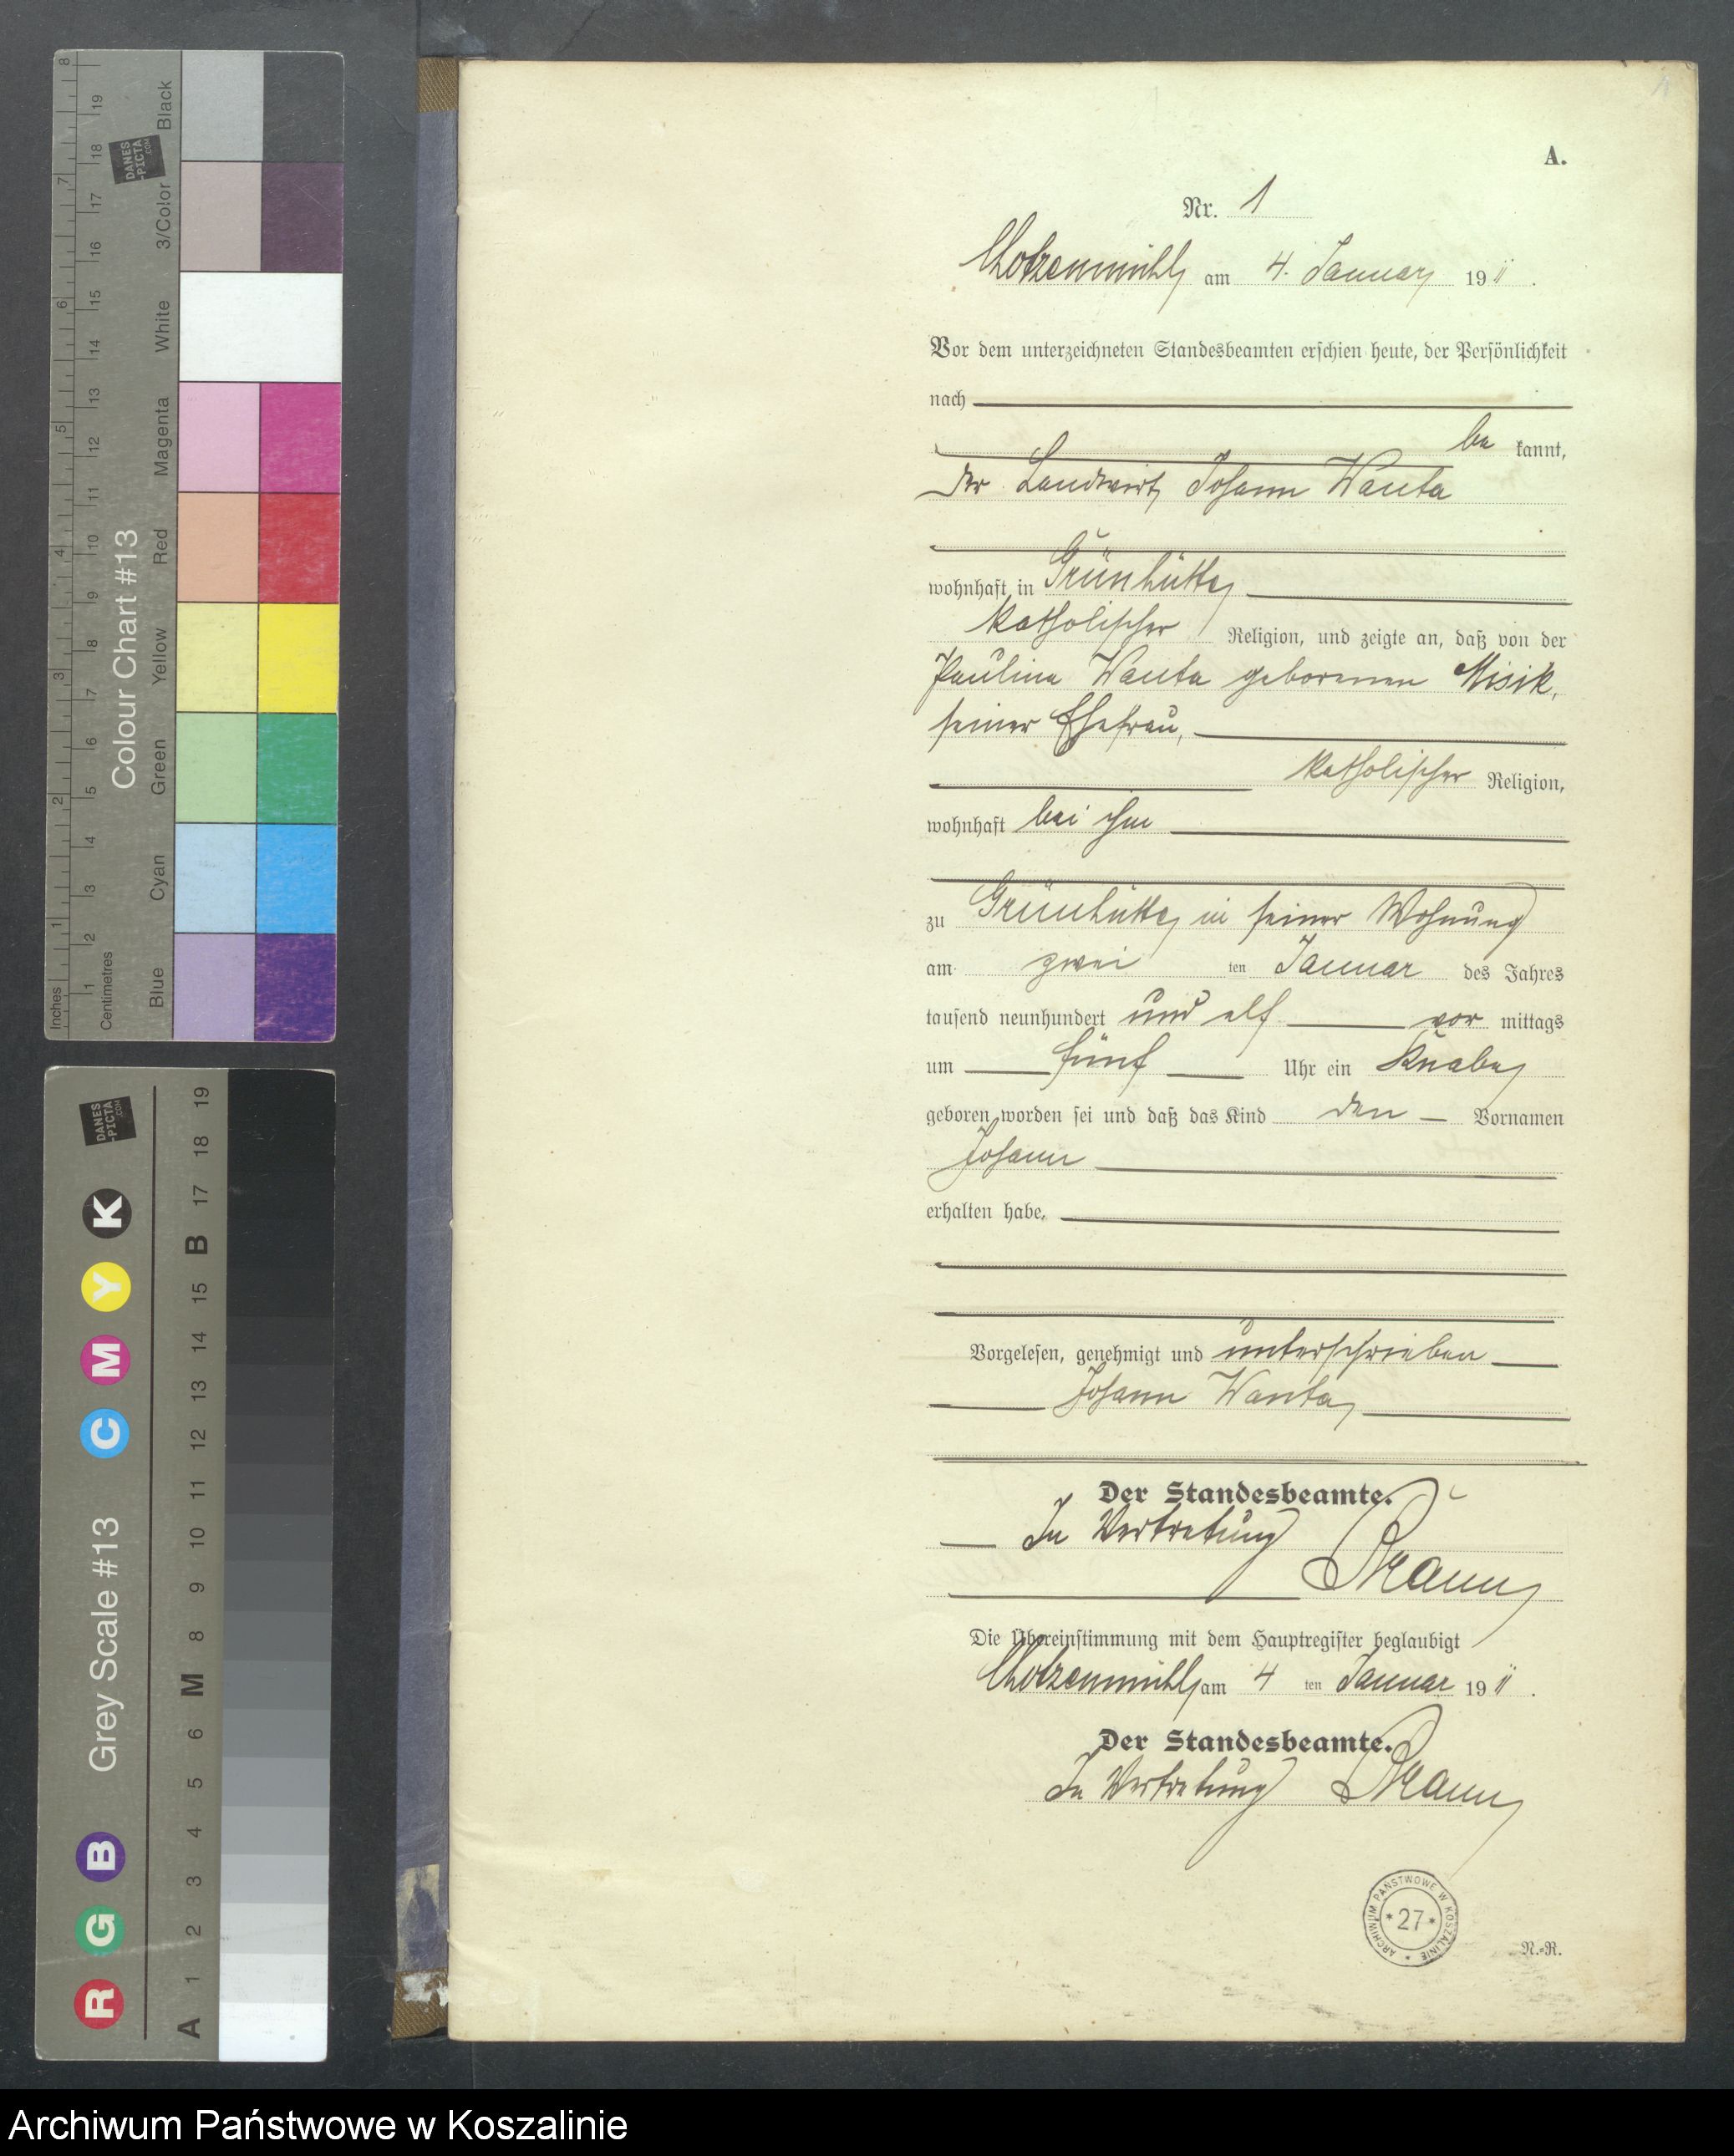 A.
Nr. 1
Chotzenmühl am 4. Januar 1911.
Vor dem unterzeichneten Standesbeamten erschien heute, der Persönlichkeit
nach
be kannt,
der Landwirt Johann Wanta
wohnhaft in Grünhütte
katholischer Religion, und zeigte an, daß von der
Paulina Wanta geborenen Misik,
seiner Ehefrau,
katholischer Religion,
wohnhaft bei ihm
zu Grünhütte in seiner Wohnung
am zwei ten Januar des Jahres
tausend neunhundert und elf vor mittags
um fünf Uhr ein Knabe
geboren worden sei und daß das Kind den Vornamen
Johann
erhalten habe.
Vorgelesen, genehmigt und unterschrieben
Johann Wanta
Der Standesbeamte.
In Vertretung
Die Übereinstimmung mit dem Hauptregister beglaubigt
Chotzenmühl am 4 ten Januar 1911.
Der Standesbeamte.
In Vertretung
ARCHIWUM PAŃSTWOWE W KOSZALINIE
* 27 *
N.=R.
Inches
1 2 3 4 5 6 7 8
Centimetres
1 2 3 4 5 6 7 8 9 10 11 12 13 14 15 16 17 18 19
Colour Chart #13
DANES
-PICTA
.COM
Blue Cyan Green Yellow Red Magenta White 3/Color Black
Grey Scale #13
DANES
-PICTA
.COM
R G B C M Y K
A 1 2 3 4 5 6 M 8 9 10 11 12 13 14 15 B 17 18 19
Archiwum Państwowe w Koszalinie